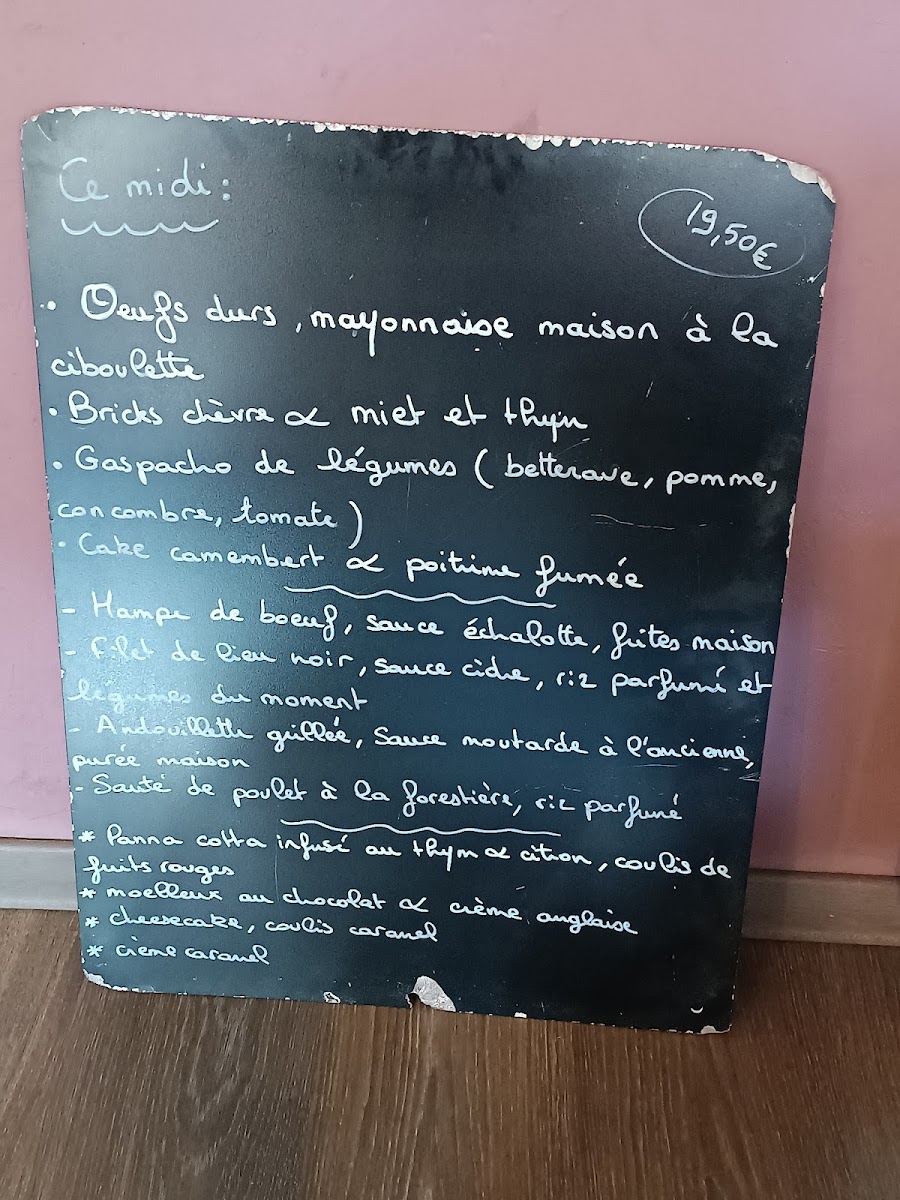 Ce midi :
19,50€
• Oeufs durs, mayonnaise maison à la
ciboulette
• Bricks chèvre & miel et thym
• Gaspacho de légumes (betterave, pomme,
concombre, tomate)
• Cake camembert & poitrine fumée
- Hampe de boeuf, sauce échalotte, frites maison
- Filet de lieu noir, sauce cidre, riz parfumé et
légumes du moment
- Andouillette grillée, sauce moutarde à l'ancienne,
purée maison
- Sauté de poulet à la forestière, riz parfumé
* Panna cotta infusé au thym & citron, coulis de
fruits rouges
* moelleux au chocolat & crème anglaise
* cheesecake, coulis caramel
* crème caramel